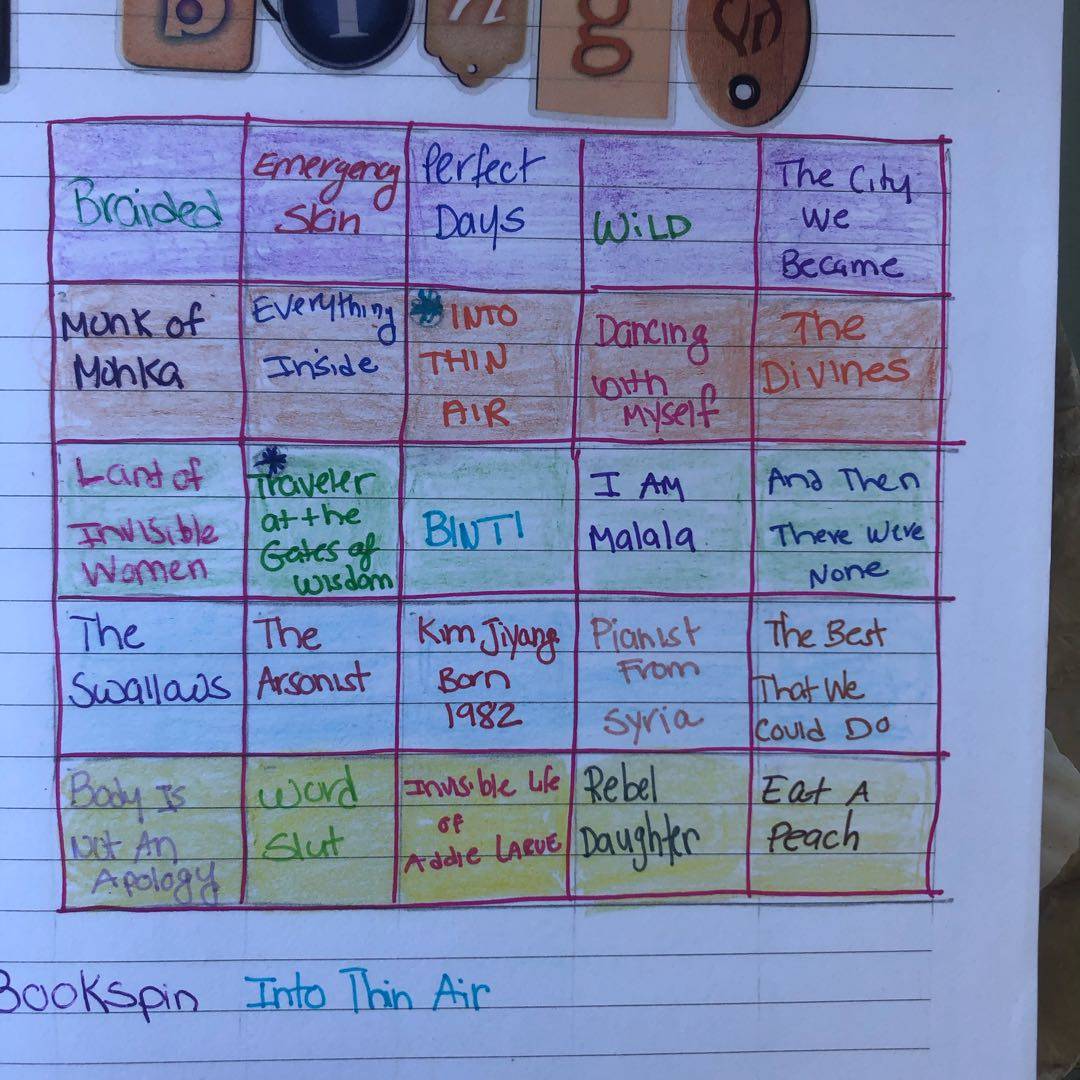 Bing
Braided
Emergency
Skin
Perfect
Days
WiLD
The City
We
Became
Monk of
Mohka
Everything
Inside
INTO
THIN
AIR
Dancing
With
Myself
The
Divines
Land of
Invisible
Women
Traveler
at the
Gates of
Wisdom
BINTI
I AM
Malala
And Then
There Were
None
The
Swallows
The
Arsonist
Kim Jiyang
Born
1982
Pianist
From
Syria
The Best
That We
Could Do
Body Is
Not An
Apology
Word
Slut
Invisible Life
of
Addie LARUE
Rebel
Daughter
Eat A
Peach
Bookspin Into Thin Air